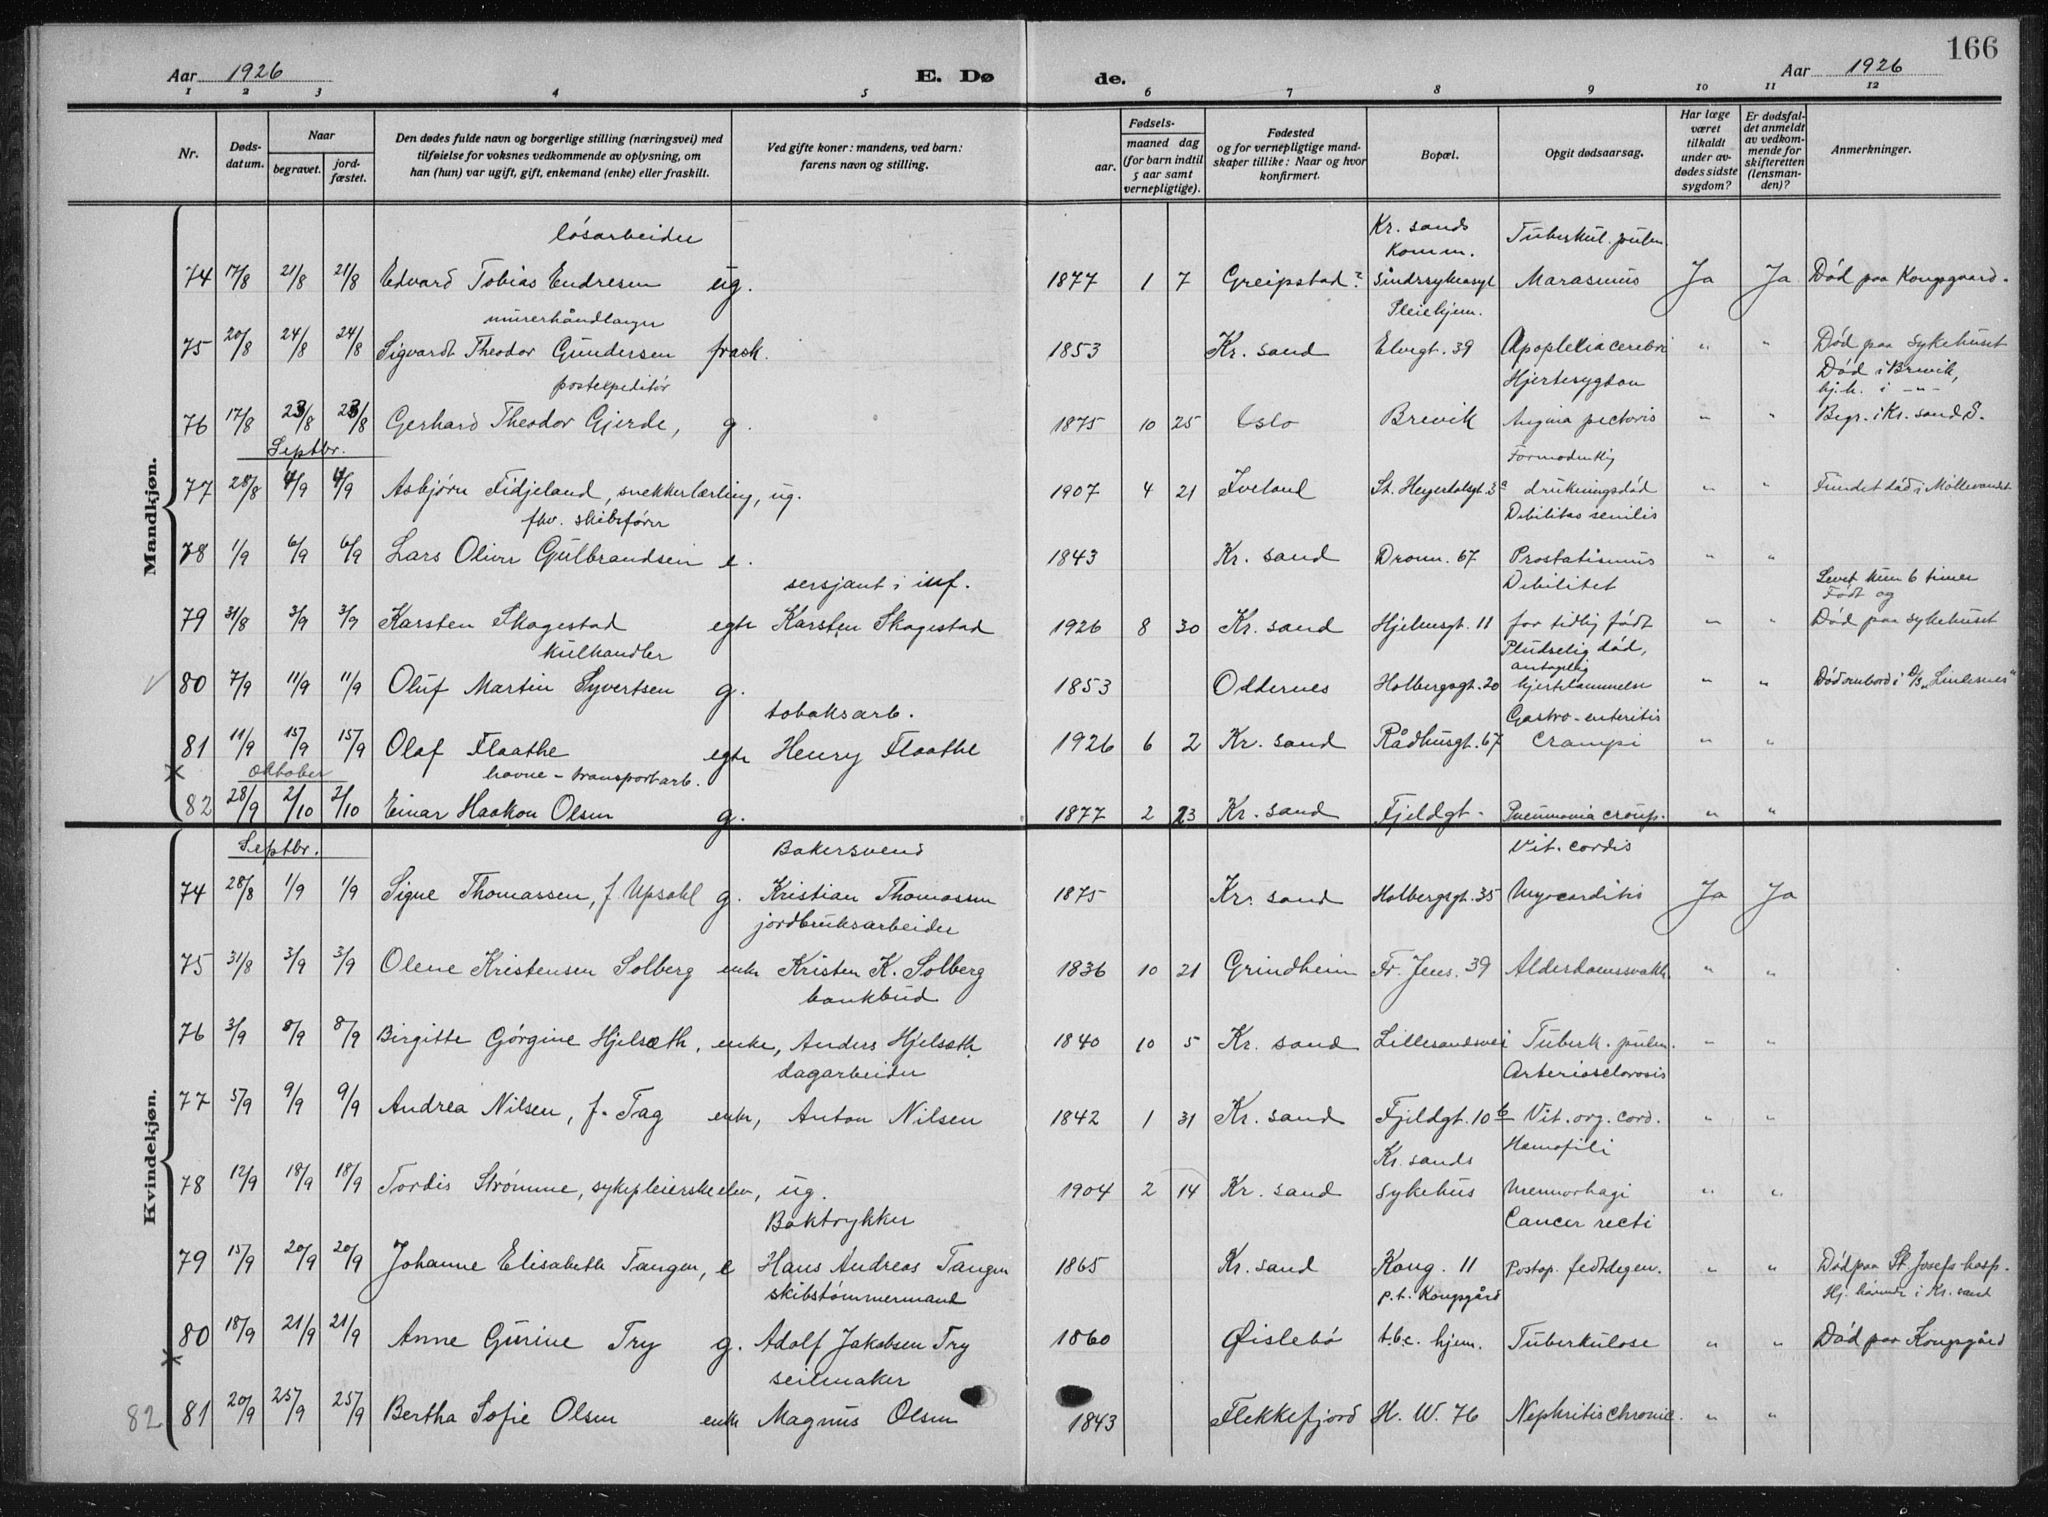 166
Aar 1926 E. Dø de. Aar 1926
1 2 3 4 5 6 7 8 9 10 11 12
Nr. Døds-datum. Naar begravet. jord-fæstet. Den dødes fulde navn og borgerlige stilling (næringsvei) med tilføielse for voksnes vedkommende av oplysning, om han (hun) var ugift, gift, enkemand (enke) eller fraskilt. Ved gifte koner: mandens, ved barn: farens navn og stilling. Fødsels- aar. maaned dag (for barn indtil 5 aar samt vernepligtige). Fødested og for vernepligtige mand-skaper tillike: Naar og hvor konfirmert. Bopæl. Opgit dødsaarsag. Har læge været tilkaldt under av-dødes sidste sygdom? Er dødsfal-det anmeldt av vedkom-mende for skifteretten (lensman-den)? Anmerkninger.
Mandkjøn.
løsarbeider Kr. sands Komm. Tuberkul. pulm.
74 17/8 21/8 21/8 Edvard Tobias Endresen ug. 1877 1 7 Greipstad? Sindssykeasyl Marasmus Ja Ja Død paa Kongsgaard.
murerhåndlanger Pleiehjem.
75 20/8 24/8 24/8 Sigvardt Theodor Gundersen frask. 1853 Kr. sand Elvegt. 39 Apoplexia cerebri " " Død paa sykehuset
postexpeditør Hjertesygdom Død i Brevik, hj.h. i -"-
76 17/8 23/8 23/8 Gerhard Theodor Gjerde, g. 1875 10 25 Oslo Brevik Angina pectoris " " Begr. i Kr. sand S.
Septbr. Formodentlig
77 28/8 4/9 4/9 Asbjørn Fidjeland, snekkerlærling, ug. 1907 4 21 Iveland St. Heyerdalsgt. 3a drukningsdød " " Fundet død i Møllevandet
fhv. skibsfører Debilitas senilis
78 1/9 6/9 6/9 Lars Oliver Gulbrandsen e. 1843 Kr. sand Dronn. 67 Prostatismus " "
sersjant i inf. Debilitet Levet kun 6 timer Født og
79 31/8 3/9 3/9 Karsten Skagestad egte Karsten Skagestad 1926 8 30 Kr. sand Hjelmsgt. 11 for tidlig født " " Død paa sykehuset
kulhandler Pludselig død, antagelig
80 7/9 11/9 11/9 Oluf Martin Syvertsen g. 1853 Oddernes Holbergsgt. 20 hjertelammelse " " Død ombord i D/S „Lindesnes"
tobaksarb. Gastro-enteritis
81 11/9 15/9 15/9 Olaf Flaathe egte Henry Flaathe 1926 6 2 Kr. sand Rådhusgt. 67 Crampi " "
× Oktober havne-transportarb.
82 28/9 2/10 2/10 Einar Haakon Olsen g. 1877 2 23 Kr. sand Fjeldgt - Pneumonia croup. " "
Kvindekjøn.
Septbr. Bakersvend Vit. cordis
74 28/8 1/9 1/9 Signe Thomassen, f. Upsahl g. Kristian Thomassen 1875 Kr. sand Holbergsgt. 35 Myocarditis Ja Ja
jordbruksarbeider
75 31/8 3/9 3/9 Olene Kristensen Solberg enke Kristen K. Solberg 1836 10 21 Grindheim Fr. Jens. 39 Alderdomssvakh. " "
bankbud
76 3/9 8/9 8/9 Birgitte Gørgine Hjelsæth, enke, Anders Hjelsæth 1840 10 5 Kr. sand Lillesandsvei Tuberk. pulm. " "
dagarbeider Arteriosclerosis
77 5/9 9/9 9/9 Andrea Nilsen, f. Tag enke, Anton Nilsen 1842 1 31 Kr. sand Fjeldgt. 10 b Vit. org. cord. " "
Kr. sands Hæmofili
78 12/9 18/9 18/9 Tordis Strømme, sykepleierskeelev, ug. 1904 2 14 Kr. sand sykehus Menorrhagi " "
Boktrykker Cancer recti
79 15/9 20/9 20/9 Johanne Elisabeth Tangen, e Hans Andreas Tangen 1865 Kr. sand Kong. 11 Postop. fedtdegen. " " Død paa St. Josefs hosp.
skibstømmermand p.t. Kongsgård Hj. hørende i Kr. sand
80 18/9 21/9 21/9 Anne Gurine Try g. Adolf Jakobsen Try 1860 Øislebø t.b.c. hjem. Tuberkulose " " Død paa Kongsgård
× seilmaker
82 81 20/9 25/9 25/9 Bertha Sofie Olsen enke Magnus Olsen 1843 Flekkefjord H. W. 76 Nephritis chronic. " "